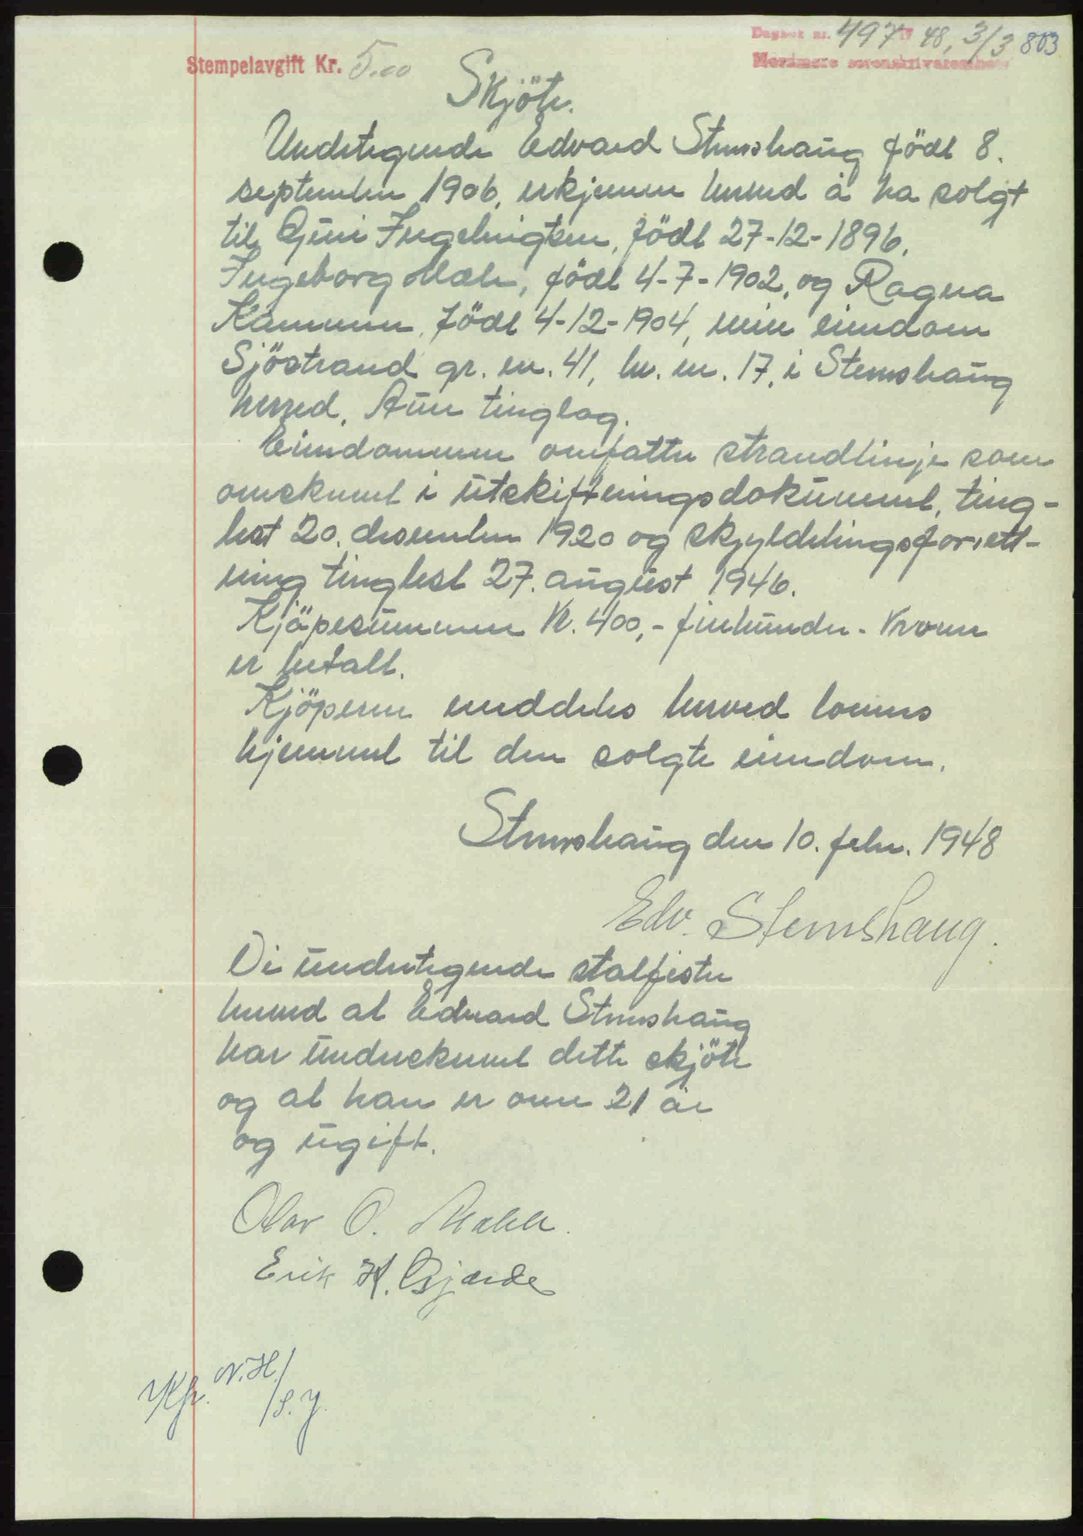 Dagbok nr. 497 1948, 3/3 803
Stempelavgift Kr. 5.00
Nordmøre sorenskriverembete
Skjöte.
Undertegnede Edvard Stemshaug född 8.
september 1906, erkjenner herved å ha solgt
til Guri Ingebrigtsen, född 27-12-1896,
Ingeborg Mæle, född 4-7-1902, og Ragna
född 4-12-1904, min eiendom
Sjöstrand gr. nr. 41, br. nr. 17, i Stemshaug
herred, Aure tinglag.
Eiendommen omfatter strandlinje som
omskrevet i utskiftningsdokument, ting-
lest 20. desember 1920 og skyldelingsforrett-
ning tinglest 27. august 1946.
Kjöpesummen kr. 400,- firehundre - kroner
er betalt.
Kjöperne meddeles herved lovens
hjemmel til den solgte eiendom.
Stemshaug den 10. febr. 1948
Edv. Stemshaug.
Vi undertegnede attesterer
herved at Edvard Stemshaug
har underskrevet dette skjöte
og at han er over 21 år
og ugift.
Olav O. Mæle.
Erik H. Gjærde
Kfr. N.H./
/S.J.